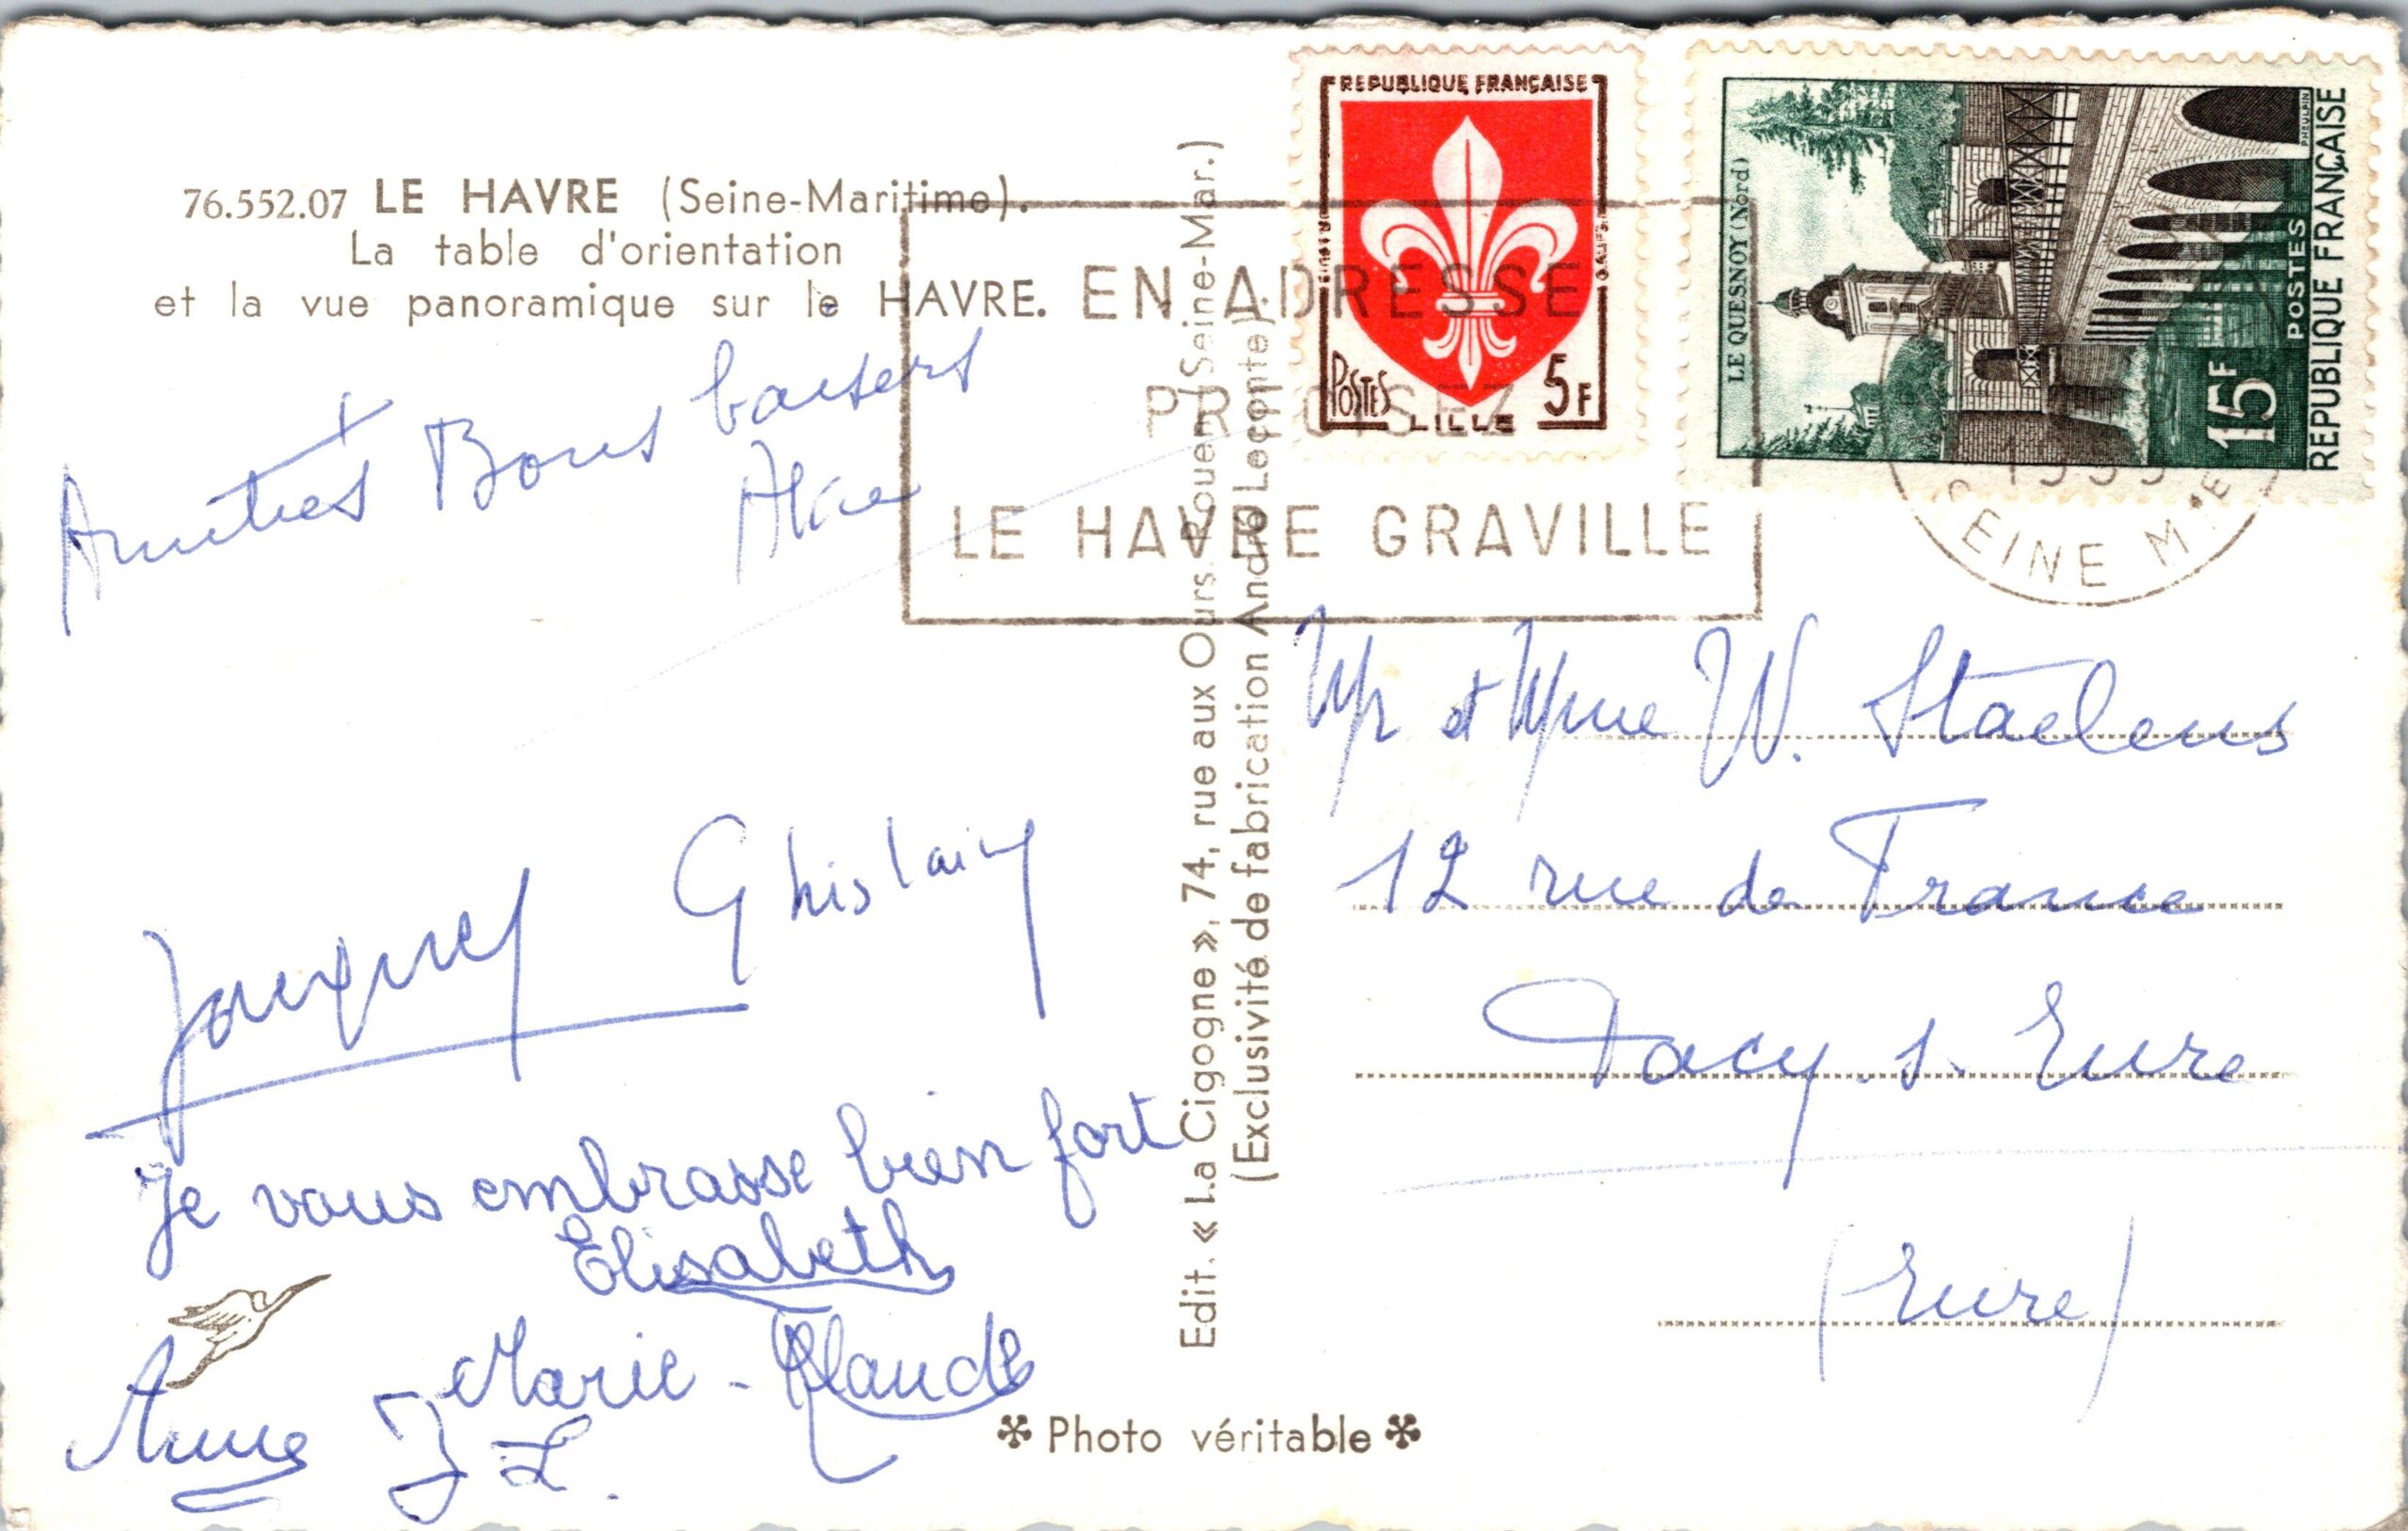 76.552.07 LE HAVRE (Seine-Maritime).
La table d'orientation
et la vue panoramique sur le HAVRE.
REPUBLIQUE FRANÇAISE
POSTES 5F
LILLE
LE QUESNOY (Nord)
15F POSTES
REPUBLIQUE FRANÇAISE
EN ADRESSE
PRECISEZ
LE HAVRE GRAVILLE
SEINE M
Amitiés Bons baisers
Jacques Ghislain
Je vous embrasse bien fort
Elisabeth
Marie-Claude
Anne J L.
Edit. « La Cigogne », 74, rue aux Ours. Rouen (Seine-Mar.)
(Exclusivité de fabrication André Leconte).
Mr et Mme W. Staelens
12 rue de France
Pacy s. Eure
(Eure)
Photo véritable